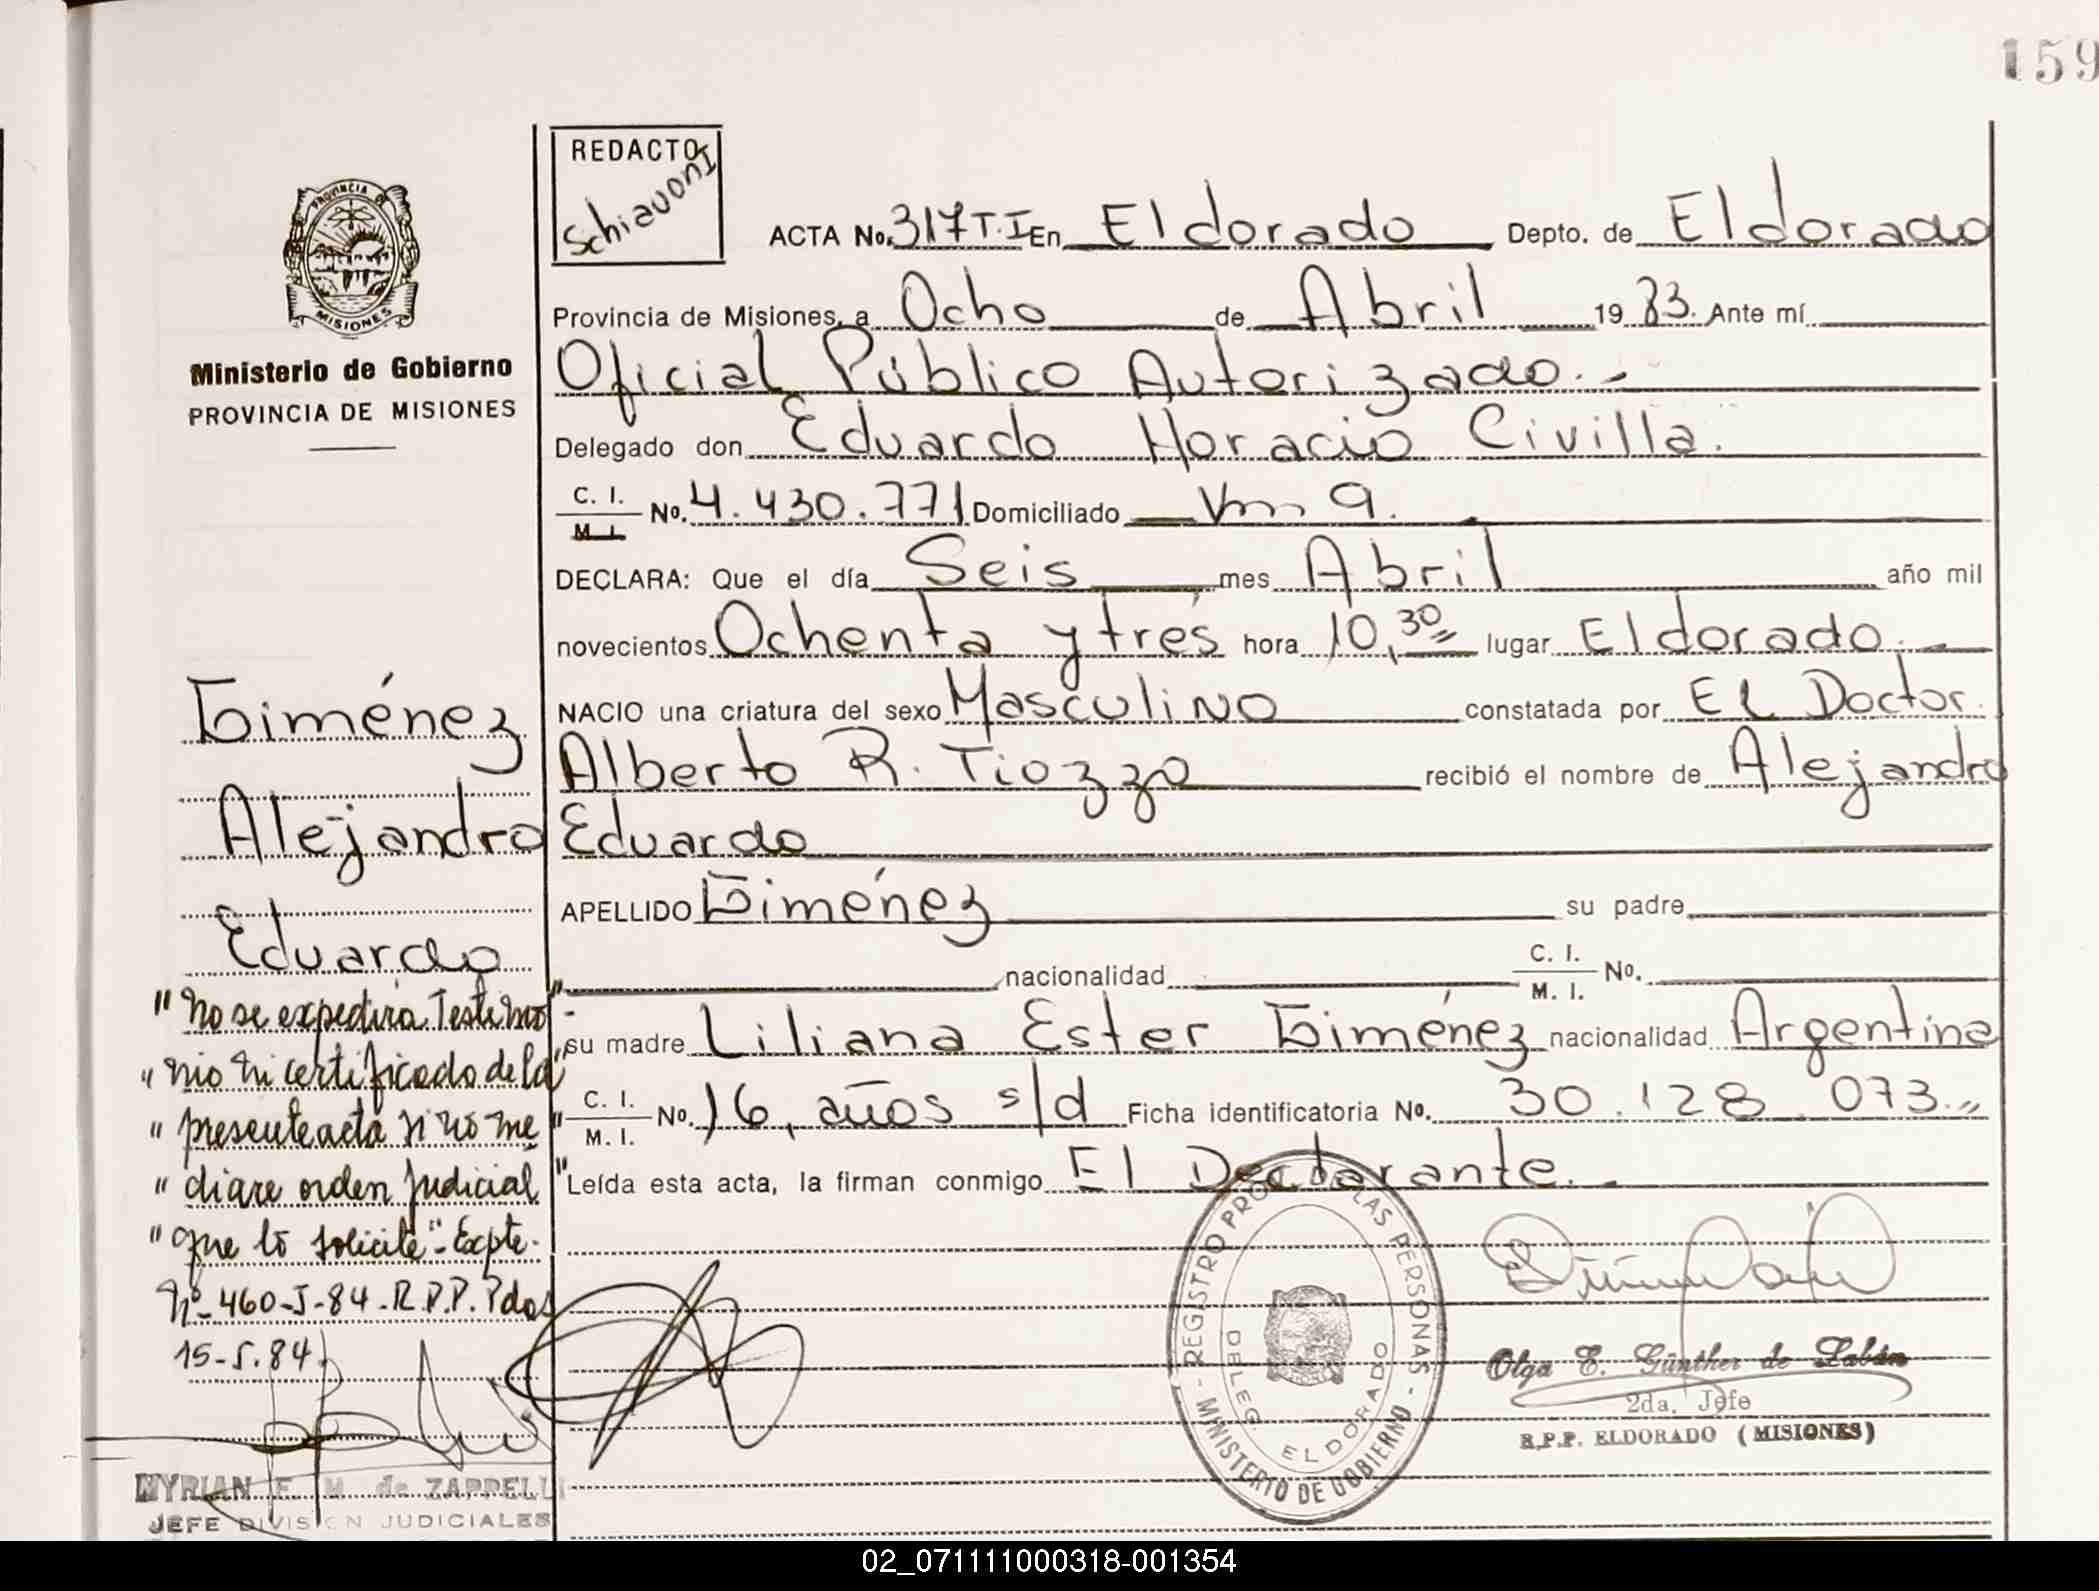 159
REDACTO
Schiavoni
PROVINCIA DE
MISIONES
Ministerio de Gobierno
PROVINCIA DE MISIONES
ACTA No. 317 T.I En Eldorado Depto. de Eldorado
Provincia de Misiones, a Ocho de Abril 19 83. Ante mí
Oficial Público Autorizado.-
Delegado don Eduardo Horacio Civilla.
C. I. M. I. No. 4.430.771 Domiciliado Km 9.
DECLARA: Que el día Seis mes Abril año mil
novecientos Ochenta y trés hora 10,30 lugar Eldorado.
NACIO una criatura del sexo Masculino constatada por El Doctor.
Alberto R. Tiozzo recibió el nombre de Alejandro
Eduardo
APELLIDO Giménez su padre
nacionalidad C. I. M. I. No.
su madre Liliana Ester Giménez nacionalidad Argentina
C. I. M. I. No. 16, años s/d Ficha identificatoria No. 30.128.073.,,
Leída esta acta, la firman conmigo El Declarante.
Giménez
Alejandro
Eduardo
"No se expedirá Testimo-
"nio ni certificado de la"
"presente acta si no me"
"diare orden judicial"
"que lo solicite"- Expte.
Nº-460-J-84-R.P.P. Pdas
15-5.84
MYRIAN E. M. de ZAPPELLI
JEFE DIVISION JUDICIALES
- REGISTRO PROV. DE LAS PERSONAS - MINISTERIO DE GOBIERNO
DELEG. ELDORADO
Olga E. Günther de Zabán
2da. Jefe
R.P.P. ELDORADO (MISIONES)
02_071111000318-001354